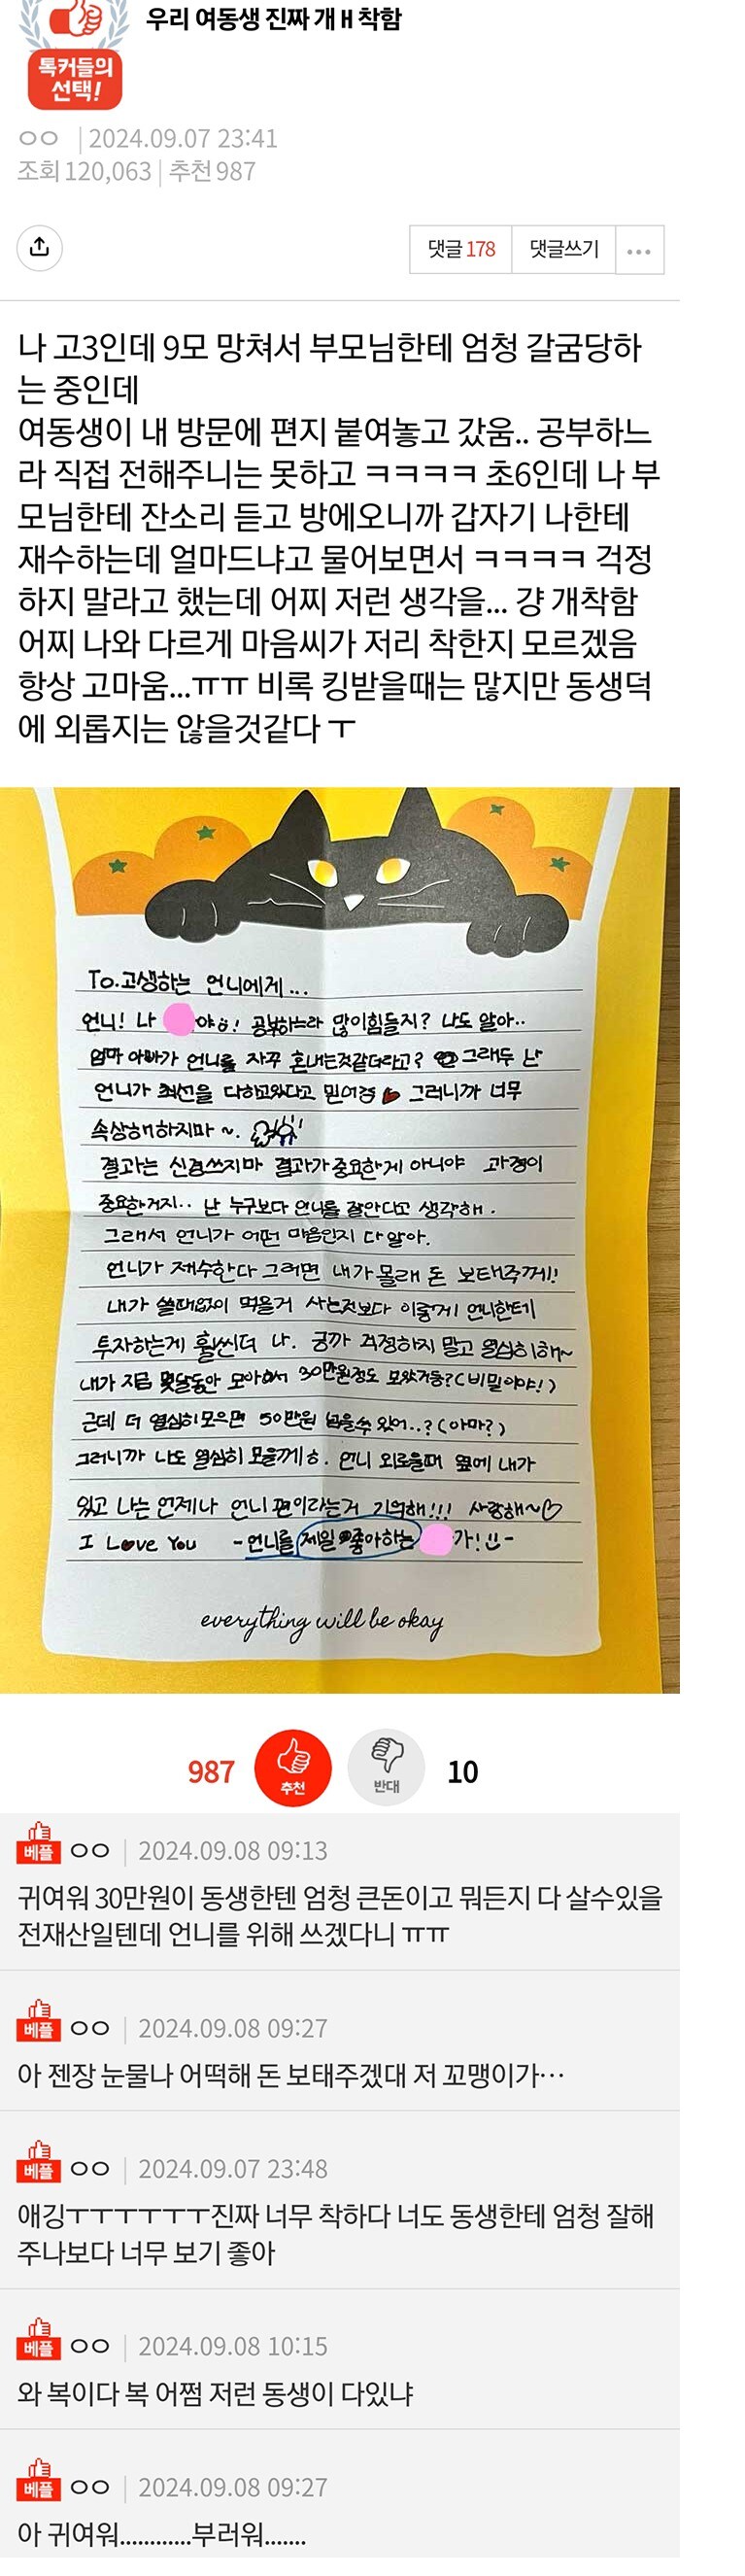 우리 여동생 진짜 개 H 착함
톡커들의
선택!
ㅇㅇ | 2024.09.07 23:41
조회 120,063 | 추천 987
댓글 178 댓글쓰기 ...
나 고3인데 9모 망쳐서 부모님한테 엄청 갈굼당하
는 중인데
여동생이 내 방문에 편지 붙여놓고 갔움.. 공부하느
라 직접 전해주니는 못하고 ㅋㅋㅋㅋ 초6인데 나 부
모님한테 잔소리 듣고 방에오니까 갑자기 나한테
재수하는데 얼마드냐고 물어보면서 ㅋㅋㅋㅋ 걱정
하지 말라고 했는데 어찌 저런 생각을... 걍 개착함
어찌 나와 다르게 마음씨가 저리 착한지 모르겠음
항상 고마움...ㅠㅠ 비록 킹받을때는 많지만 동생덕
에 외롭지는 않을것같다 ㅜ
To.고생하는 언니에게...
언니! 나 야! 공부하느라 많이힘들지? 나도 알아..
엄마 아빠가 언니를 자꾸 혼내는것같더라고? 그래두 난
언니가 최선을 다하고있다고 믿어 그러니까 너무
속상해하지마~.
결과는 신경쓰지마 결과가 중요한게 아니야 과정이
중요한거지.. 난 누구보다 언니를 잘안다고 생각해.
그래서 언니가 어떤 마음인지 다 알아.
언니가 재수한다 그러면 내가 몰래 돈 보태주께!!
내가 쓸데없이 먹을거 사는것보다 이렇게 언니한테
투자하는게 훨씬더 나. 궁까 걱정하지 말고 열심히해~
내가 지금 몇달동안 모아서 30만원정도 모았거등?(비밀이야!)
근데 더 열심히모으면 50만원 넘을수 있어..?(아마?)
그러니까 나도 열심히 모을께ㅎ. 언니 외로울때 옆에 내가
있고 나는 언제나 언니 편이라는거 기억해!!! 사랑해~♡
I Love You -언니를 제일 좋아하는 가!-
everything will be okay
987 추천 반대 10
베플 ㅇㅇ | 2024.09.08 09:13
귀여워 30만원이 동생한텐 엄청 큰돈이고 뭐든지 다 살수있을
전재산일텐데 언니를 위해 쓰겠다니 ㅠㅠ
베플 ㅇㅇ | 2024.09.08 09:27
아 젠장 눈물나 어떡해 돈 보태주겠대 저 꼬맹이가…
베플 ㅇㅇ | 2024.09.07 23:48
애깅ㅜㅜㅜㅜㅜㅜ진짜 너무 착하다 너도 동생한테 엄청 잘해
주나보다 너무 보기 좋아
베플 ㅇㅇ | 2024.09.08 10:15
와 복이다 복 어쩜 저런 동생이 다있냐
베플 ㅇㅇ | 2024.09.08 09:27
아 귀여워............부러워.......